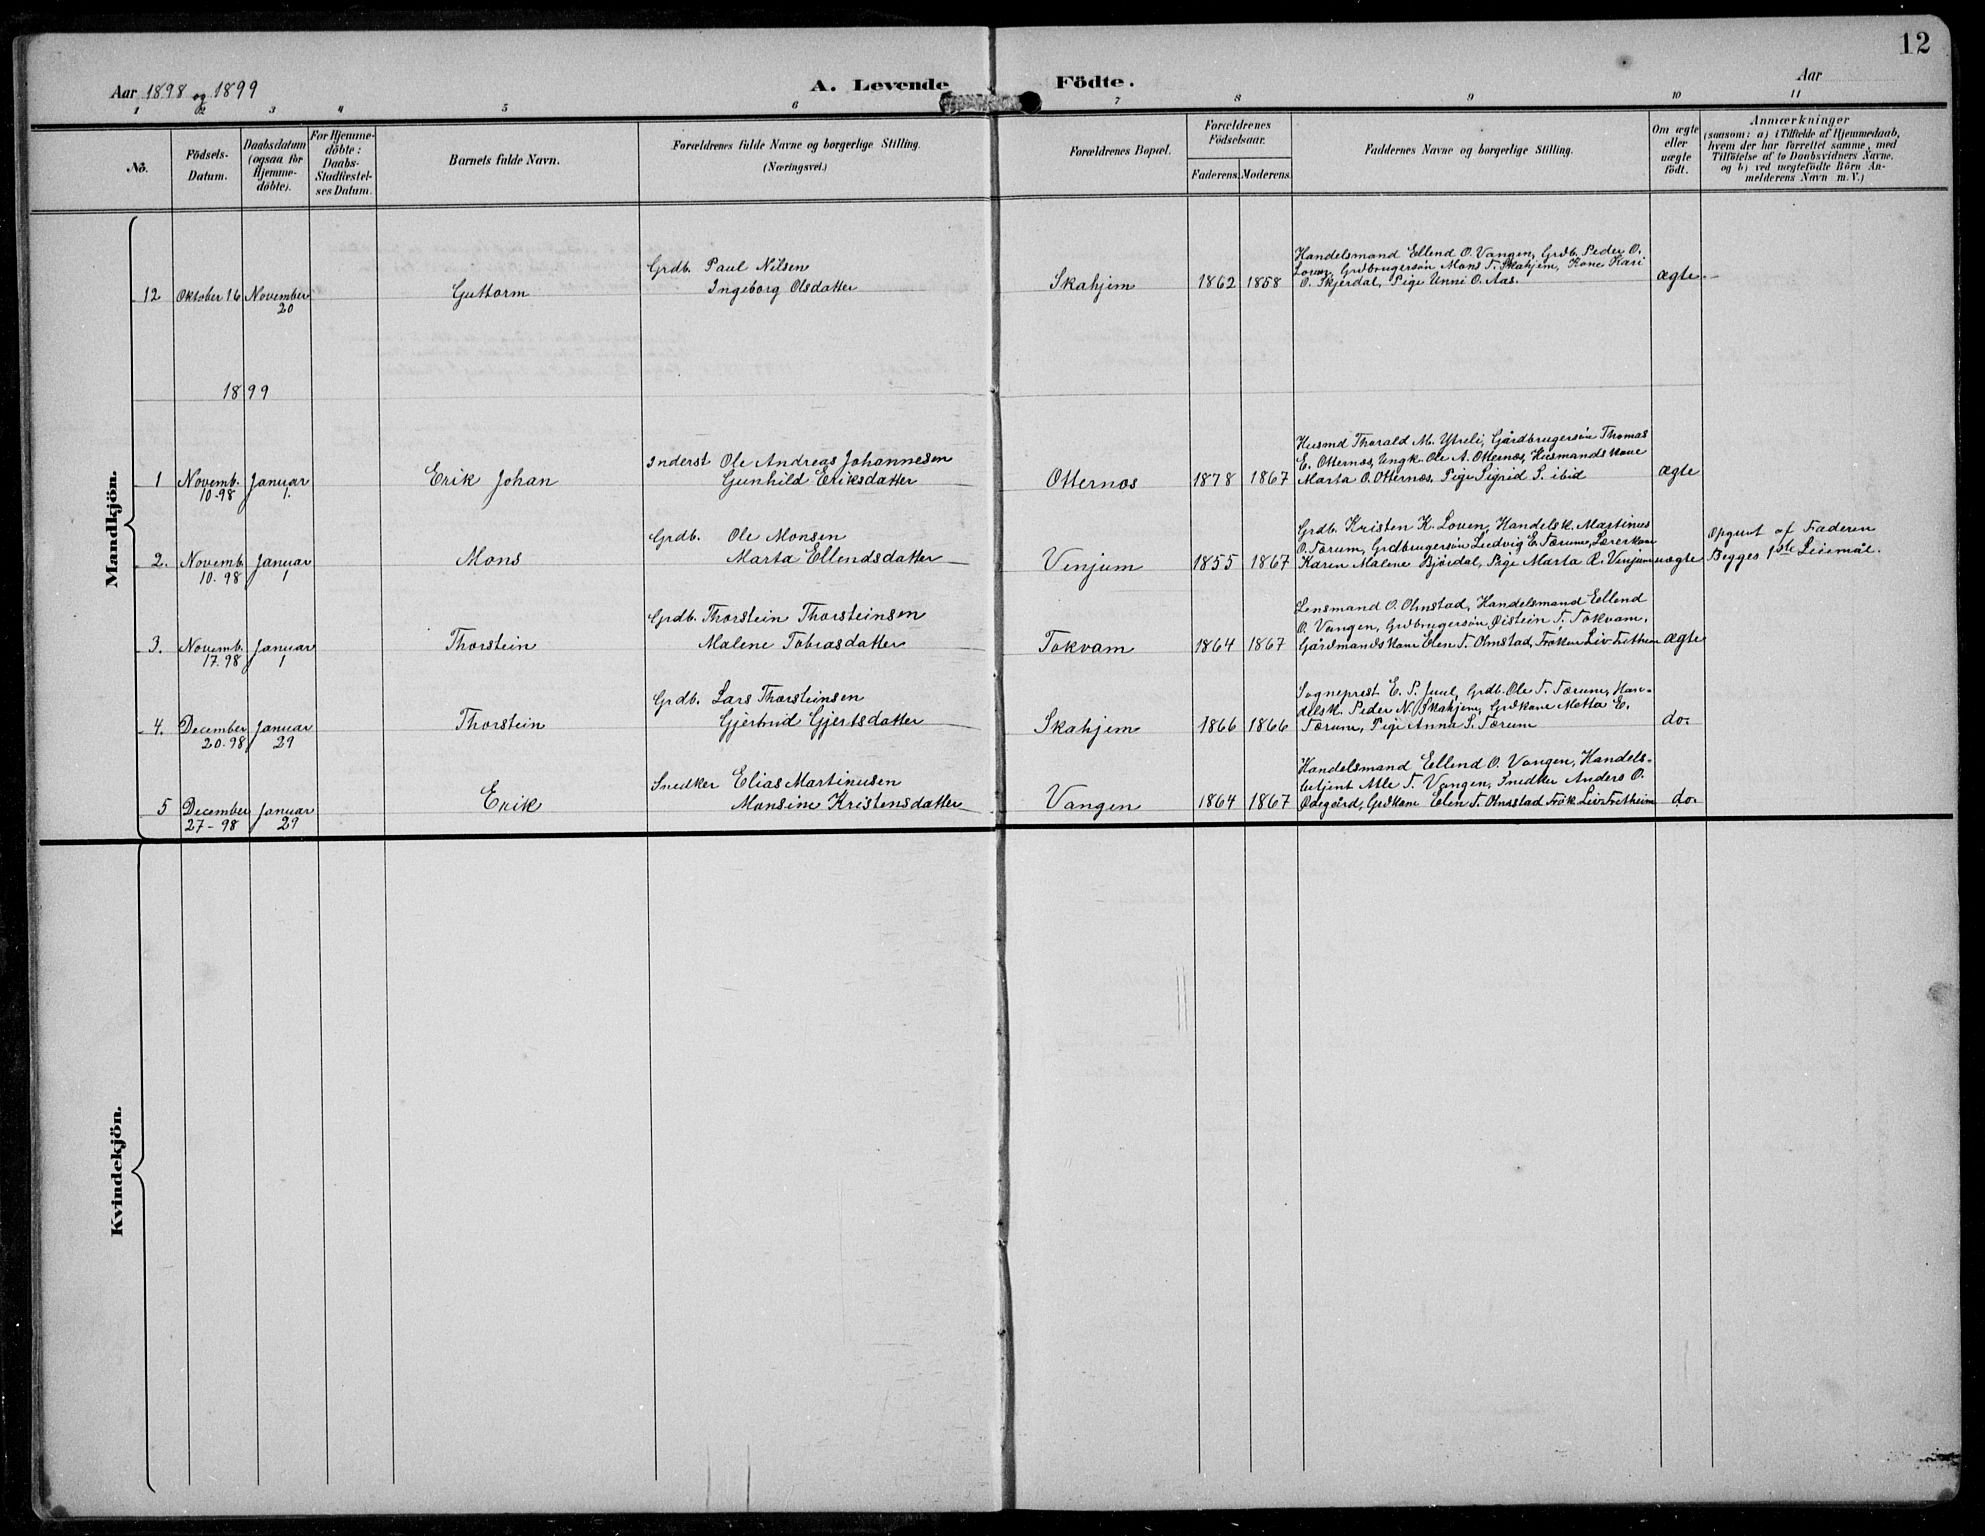 12
Aar 1898 og 1899
A. Levende Födte.
Aar
1 2 3 4 5 6 7 8 9 10 11
No.
Födsels-Datum.
Daabsdatum (ogsaa for Hjemme-döbte).
For Hjemme-döbte: Daabs-Stadfæstel-ses Datum.
Barnets fulde Navn.
Forældrenes fulde Navne og borgerlige Stilling. (Næringsvei.)
Forældrenes Bopæl.
Forældrenes Födselsaar.
Faderens. Moderens.
Faddernes Navne og borgerlige Stilling.
Om ægte eller uægte födt.
Anmærkninger
(saasom: a) i Tilfælde af Hjemmedaab,
hvem der har forrettet samme, med
Tilföielse af to Daabsvidners Navne,
og b) ved uægtefödte Börn An-
melderens Navn m. V.)
Mandkjön.
12 Oktober 16 November 20
Guttorm
Grdb. Paul Nilsen
Ingeborg Olsdatter
Skahjem 1862 1858
Handelsmand Ellend O. Vangen, Grdb. Peder O.
Loven, Grdbrugersøn Mons T. Skahjem, Kone Kari
O. Skjerdal, Pige Unni O. Aas.
ægte
1899
1 Novemb. 10-98 Januar 1.
Erik Johan
Inderst Ole Andreas Johannesen
Gunhild Eriksdatter
Otternæs 1878 1867
Husmd Thorald M. Ytreli, Gårdbrugersøn Thomas
E. Otternæs, Ungk. Ole A. Otternæs, Husmandskone
Marta O. Otternæs, Pige Sigrid S. ibid
ægte
2. Novemb. 10.98 Januar 1
Mons
Grdb. Ole Monsen
Marta Ellendsdatter
Vinjum 1855 1867
Grdb. Kristen K. Loven, Handelsk. Martinus
O. Tærum, Grdbrugersøn Ludvig E. Tærum, Lærerkone
Karen Malene Bjørdal, Pige Marta R. Vinjum
uægte
Opgivet af Faderen
Begges 1ste Leiemål.
3. Novemb. 17.98 Januar 1
Thorstein
Grdb. Thorstein Thorsteinsen
Malene Tobiasdatter
Tokvam 1864 1867
Lensmand O. Olmstad, Handelsmand Ellend
O. Vangen, Grdbrugersøn Øistein T. Tokvam,
Gårdmandskone Elen T. Olmstad, Frøken Liv Fretheim
ægte
4. December 20.98 Januar 29
Thorstein
Grdb. Lars Thorsteinsen
Gjertrud Gjertsdatter
Skahjem 1866 1866
Sogneprest E. P. Juul, Grdb. Ole T. Tærum, Han-
delsk. Peder N. Skahjem, Grdkone Metta E.
Tærum, Pige Anna S. Tærum
do.
5 December 27-98 Januar 29
Erik
Snedker Elias Martinusen
Monsine Kristensdatter
Vangen 1864 1867
Handelsmand Ellend O. Vangen, Handels-
betjent Atle T. Vangen, Snedker Anders O.
Ødegård, Grdkone Elen T. Olmstad Frøk. Liv Fretheim
do.
Kvindekjön.